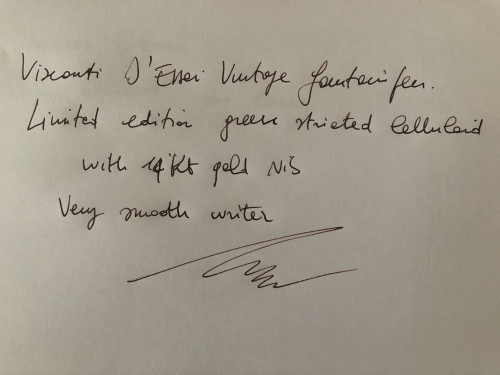 Visconti D'Essai Vintage fountainpen.
Limited edition green striated celluloid
with 14Kt gold Nib
Very smooth writer